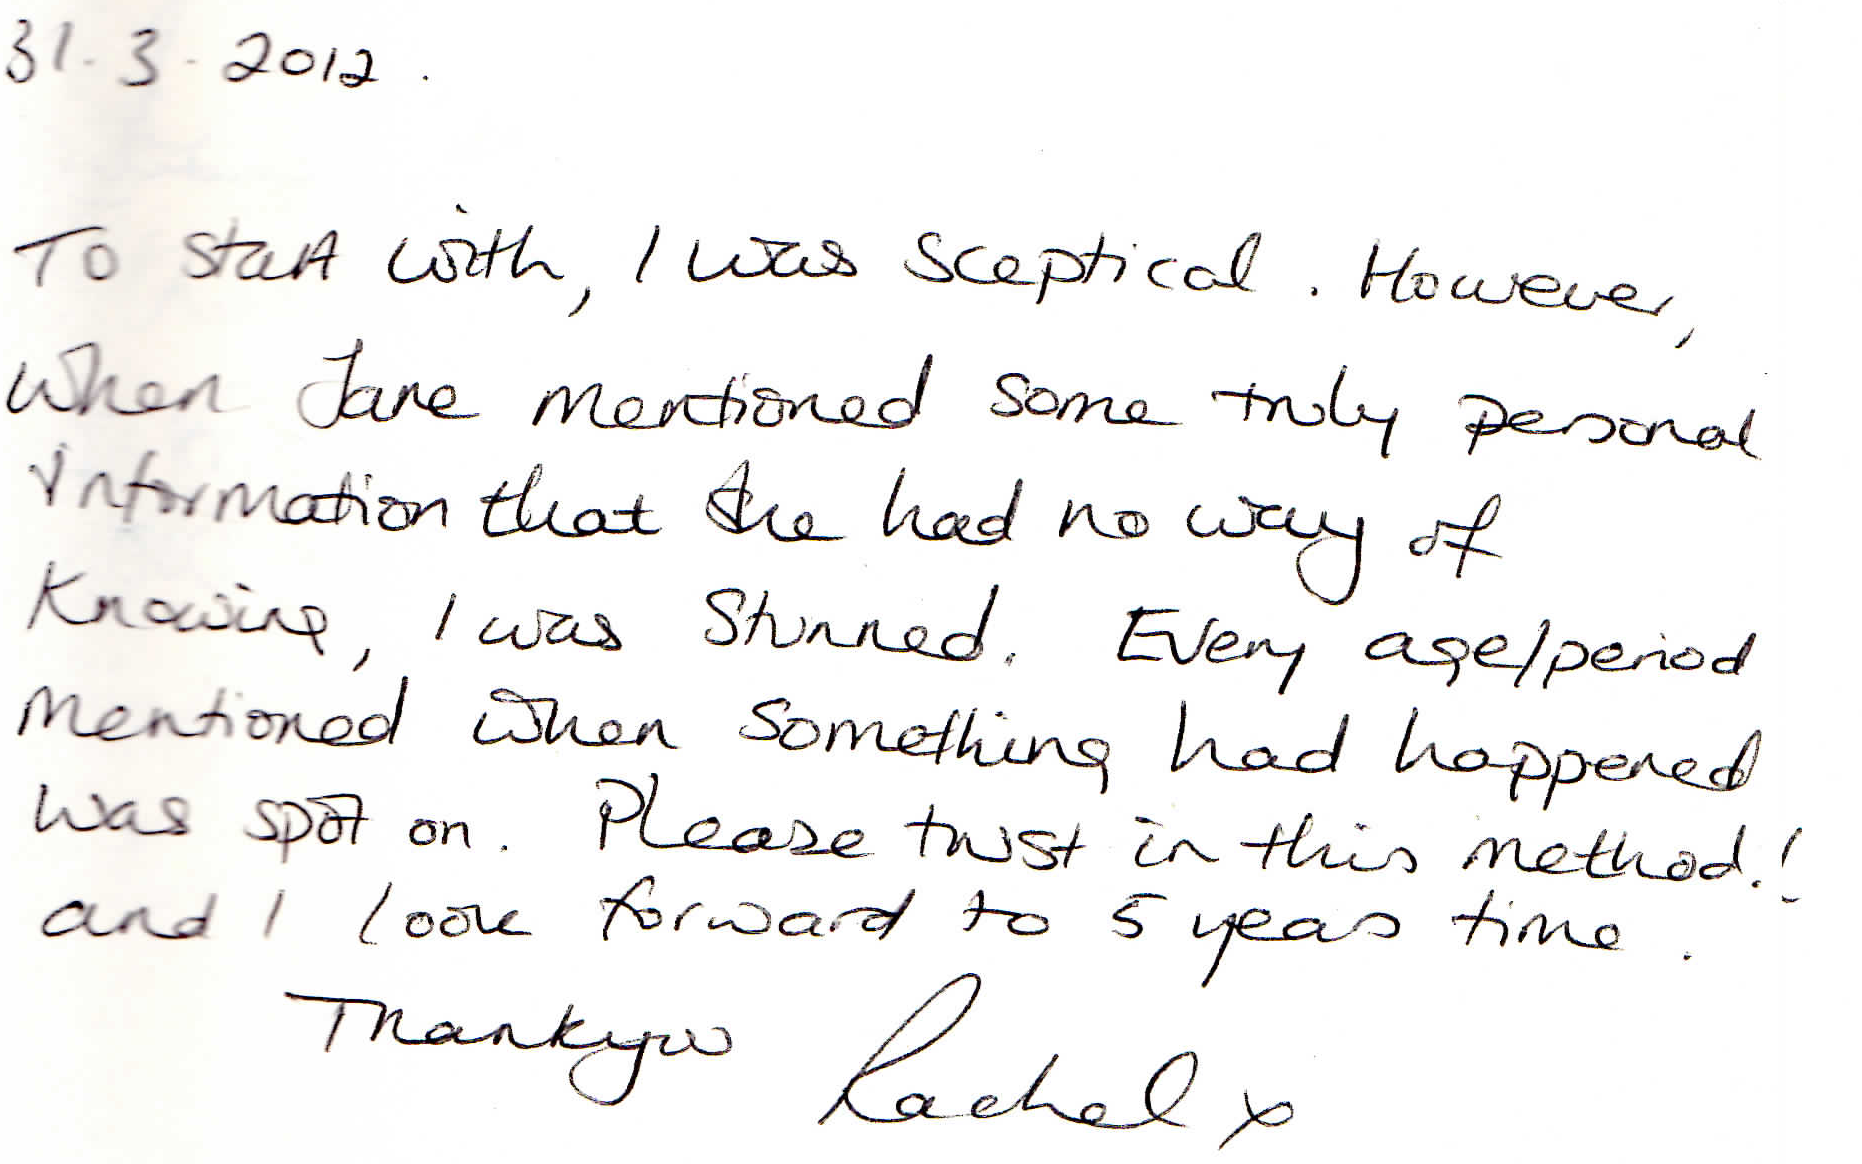 31.3.2012.
To start with, I was sceptical. However,
when Jane mentioned some truly personal
information that she had no way of
knowing, I was stunned. Every age/period
mentioned when something had happened
was spot on. Please trust in this method.!
and I look forward to 5 years time.
Thankyou Rachel x